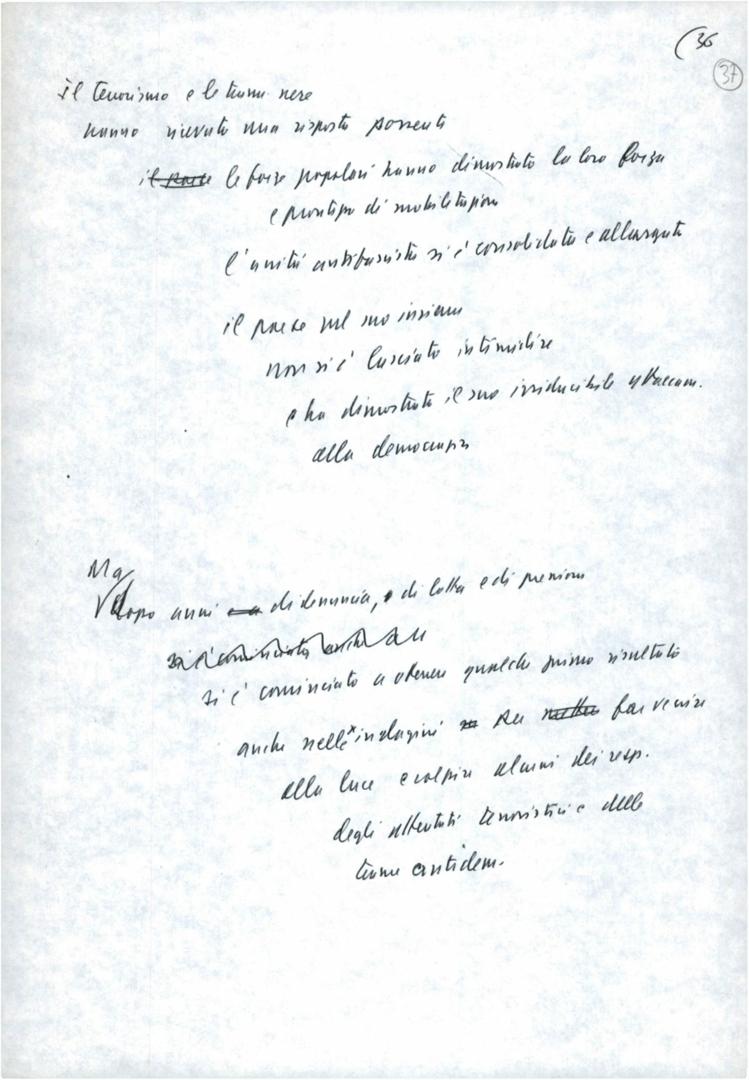 (36
37
il terrorismo e le trame nere
hanno ricevuto una risposta possente
il paese le forze popolari hanno dimostrato la loro forza
e prontezza di mobilitazione
l'unità antifascista si è consolidata e allargata
il paese nel suo insieme
non si è lasciato intimidire
e ha dimostrato il suo irriducibile attaccam.
alla democrazia
Ma
dopo anni di denuncia, di lotta e di pressione
si è cominciato anche a
si è cominciato a ottenere qualche primo risultato
anche nelle indagini per far venire
alla luce e colpire alcuni dei resp.
degli attentati terroristici e delle
trame antidem.